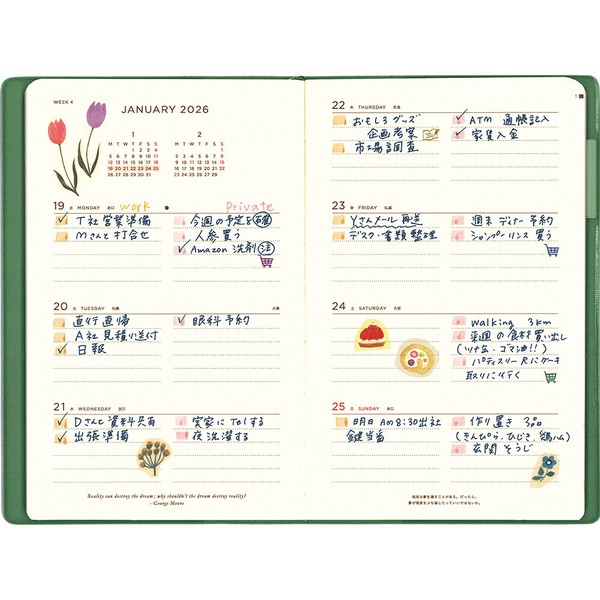 WEEK 4
JANUARY 2026
1
M T W T F S S
1 2 3 4
5 6 7 8 9 10 11
12 13 14 15 16 17 18
19 20 21 22 23 24 25
26 27 28 29 30 31
2
M T W T F S S
1
2 3 4 5 6 7 8
9 10 11 12 13 14 15
16 17 18 19 20 21 22
23 24 25 26 27 28
19 月 MONDAY 赤口 work Private
T社営業準備
Mさんと打合せ
今週の予定を
人参買う
Amazon 洗剤
20 火 TUESDAY 先勝 大寒
直行直帰
A社見積り送付
日報
眼科予約
21 水 WEDNESDAY 友引
Dさんと資料共有
出張準備
実家にTelする
夜洗濯する
Reality can destroy the dream; why shouldn't the dream destroy reality?
- George Moore
22 木 THURSDAY 先負
おもしろグッズ
企画考案
市場調査
ATM 通帳記入
家賃入金
23 金 FRIDAY 仏滅
Yさんメール再送
デスク・書類整理
週末ディナー予約
シャンプーリンス買う
24 土 SATURDAY 大安
walking 3km
来週の食材買い出し
(ツナ缶・ゴマ油!!)
パティスリーRにケーキ
取りに行く
25 日 SUNDAY 赤口
明日 Am8:30出社
鍵当番
作り置き 3品
(きんぴら・ひじき・鶏ハム)
玄関そうじ
現実は夢を壊すことがある。だったら、
夢が現実をぶち壊したっていいではないか。